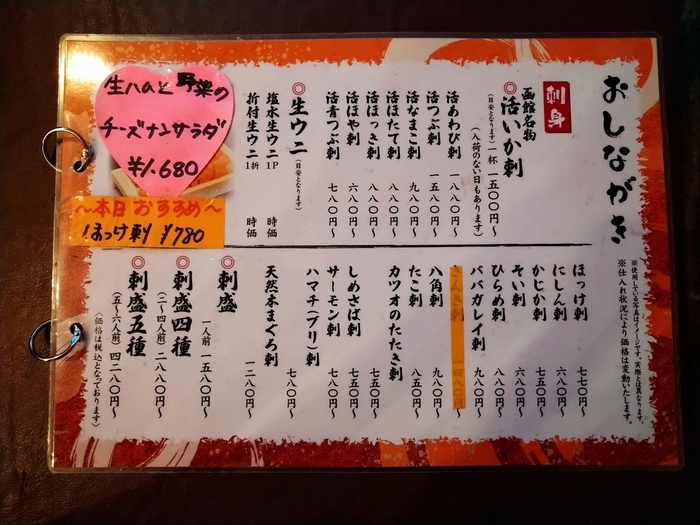 おしながき
※使用している写真はイメージです。実際とは異なります。
※仕入れ状況により価格は変動いたします。
刺身
函館名物
◎活いか刺
(目安となります)一杯 一五〇〇円〜
(入荷のない日もあります)
活あわび刺 一八八〇円〜
活つぶ刺 一五八〇円〜
活なまこ刺 九八〇円〜
活ほたて刺 八八〇円〜
活ほっき刺 八八〇円〜
活ほや刺 六八〇円〜
活青つぶ刺 七八〇円〜
◎生ウニ(目安となります)
塩水生ウニ1P 時価
折付生ウニ1折 時価
ほっけ刺 七七〇円〜
にしん刺 八八〇円〜
かじか刺 七五〇円〜
そい刺 六八〇円〜
ひらめ刺 八八〇円〜
ババガレイ刺 九八〇円〜
八角刺 九八〇円〜
たこ刺 八五〇円〜
カツオのたたき刺 七五〇円〜
しめさば刺 七五〇円〜
サーモン刺 七八〇円〜
ハマチ(ブリ)刺 七八〇円〜
天然本まぐろ刺 一二八〇円〜
◎刺盛 一人前 一五八〇円〜
◎刺盛四種
(二〜四人前)二八八〇円〜
◎刺盛五種
(五〜六人前)四二八〇円〜
(価格は税込となっております)
生ハムと野菜の
チーズナンサラダ
¥1.680
〜本日おすすめ〜
ほっけ刺 ¥780